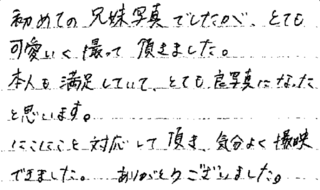 初めての兄妹写真でしたが、とても
可愛いく撮って頂きました。
本人も満足していて、とても良写真になった
と思います。
にこにこと対応して頂き、気分よく撮映
できました。ありがとうございました。